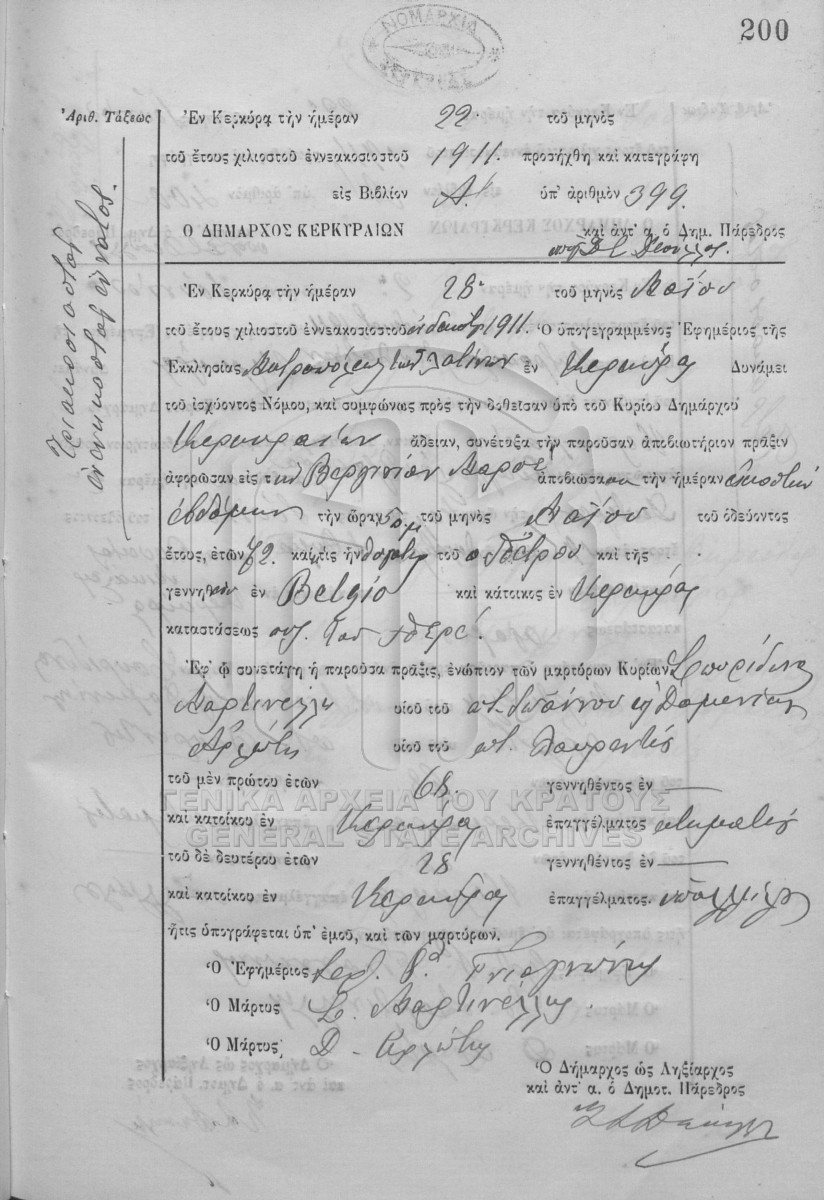 200
ΝΟΜΑΡΧΙΑ
Ἀριθ. Τάξεως
τριακοσιοστὸς
ἐνενηκοστὸς ἔννατος.
Ἐν Κερκύρᾳ τὴν ἡμέραν 22. τοῦ μηνὸς
τοῦ ἔτους χιλιοστοῦ ἐννεακοσιοστοῦ 1911. προσήχθη καὶ κατεγράφη
εἰς Βιβλίον Α! ὑπ' ἀριθμὸν 399.
Ο ΔΗΜΑΡΧΟΣ ΚΕΡΚΥΡΑΙΩΝ καὶ ἀντ' α. ὁ Δημ. Πάρεδρος
Ἐν Κερκύρᾳ τὴν ἡμέραν 28 τοῦ μηνὸς Μαΐου
τοῦ ἔτους χιλιοστοῦ ἐννεακοσιοστοῦ ἑνδεκάτ 1911. Ὁ ὑπογεγραμμένος Ἐφημέριος τῆς
Ἐκκλησίας Μητροπόλεως τῶν Λατίνων ἐν Κερκύρᾳ Δυνάμει
τοῦ ἰσχύοντος Νόμου, καὶ συμφώνως πρὸς τὴν δοθεῖσαν ὑπὸ τοῦ Κυρίου Δημάρχου
Κερκυραίων ἄδειαν, συνέταξα τὴν παροῦσαν ἀποβιωτήριον πρᾶξιν
ἀφορῶσαν εἰς τ ὴν Βεργινίαν ἀποβιώσασαν τὴν ἡμέραν εἰκοστὴν
ἑβδόμην τὴν ὥραν 5 τοῦ μηνὸς Μαΐου τοῦ ὁδεύοντος
ἔτους, ἐτῶν 72. καὶ τις ἦν θυγάτηρ τοῦ Πέτρου καὶ τῆς
γεννηθ ἐν Belgio καὶ κάτοικος ἐν Κερκύρᾳ
καταστάσεως συζ. τοῦ
Ἐφ' ᾧ συνετάγη ἡ παροῦσα πρᾶξις, ἐνώπιον τῶν μαρτύρων Κυρίων Σπυρίδωνα
Μαρτινέλλη υἱοῦ τοῦ ποτ. Ἰωάννου κ Δομενίκου
Ἀρλώτη υἱοῦ τοῦ ποτ. Λαυρεντίου
τοῦ μὲν πρώτου ἐτῶν 68. γεννηθέντος ἐν —
καὶ κατοίκου ἐν Κερκύρᾳ ἐπαγγέλματος κτηματίας
τοῦ δὲ δευτέρου ἐτῶν 28 γεννηθέντος ἐν —
καὶ κατοίκου ἐν Κερκύρᾳ ἐπαγγέλματος.
ἥτις ὑπογράφεται ὑπ' ἐμοῦ, καὶ τῶν μαρτύρων.
Ὁ Ἐφημέριος
Ὁ Μάρτυς Σ. Μαρτινέλλης.
Ὁ Μάρτυς Δ. Ἀρλώτης
Ὁ Δήμαρχος ὡς Ληξίαρχος
καὶ ἀντ' α. ὁ Δημοτ. Πάρεδρος
ΓΕΝΙΚΑ ΑΡΧΕΙΑ ΤΟΥ ΚΡΑΤΟΥΣ
GENERAL STATE ARCHIVES